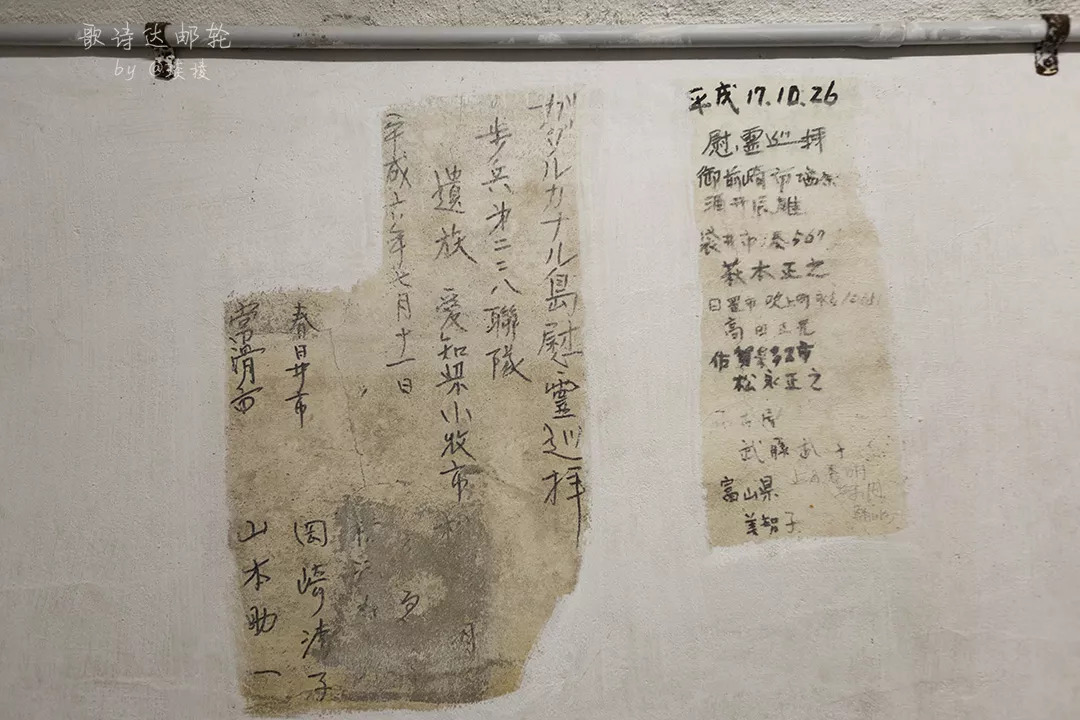 歌诗达邮轮
by @棱棱
ガダルカナル島慰霊巡拝
歩兵第二二八聯隊
遺族 愛知県小牧市
平成六年七月十一日
春日井市 岡崎沣子
常滑市 山本助一
平成17.10.26
慰霊巡拝
御前崎市
酒井辰雄
袋井市湊567
萩本正之
日置市吹上町
高田正光
佐賀県多久市
松永正之
武藤
富山県
美智子